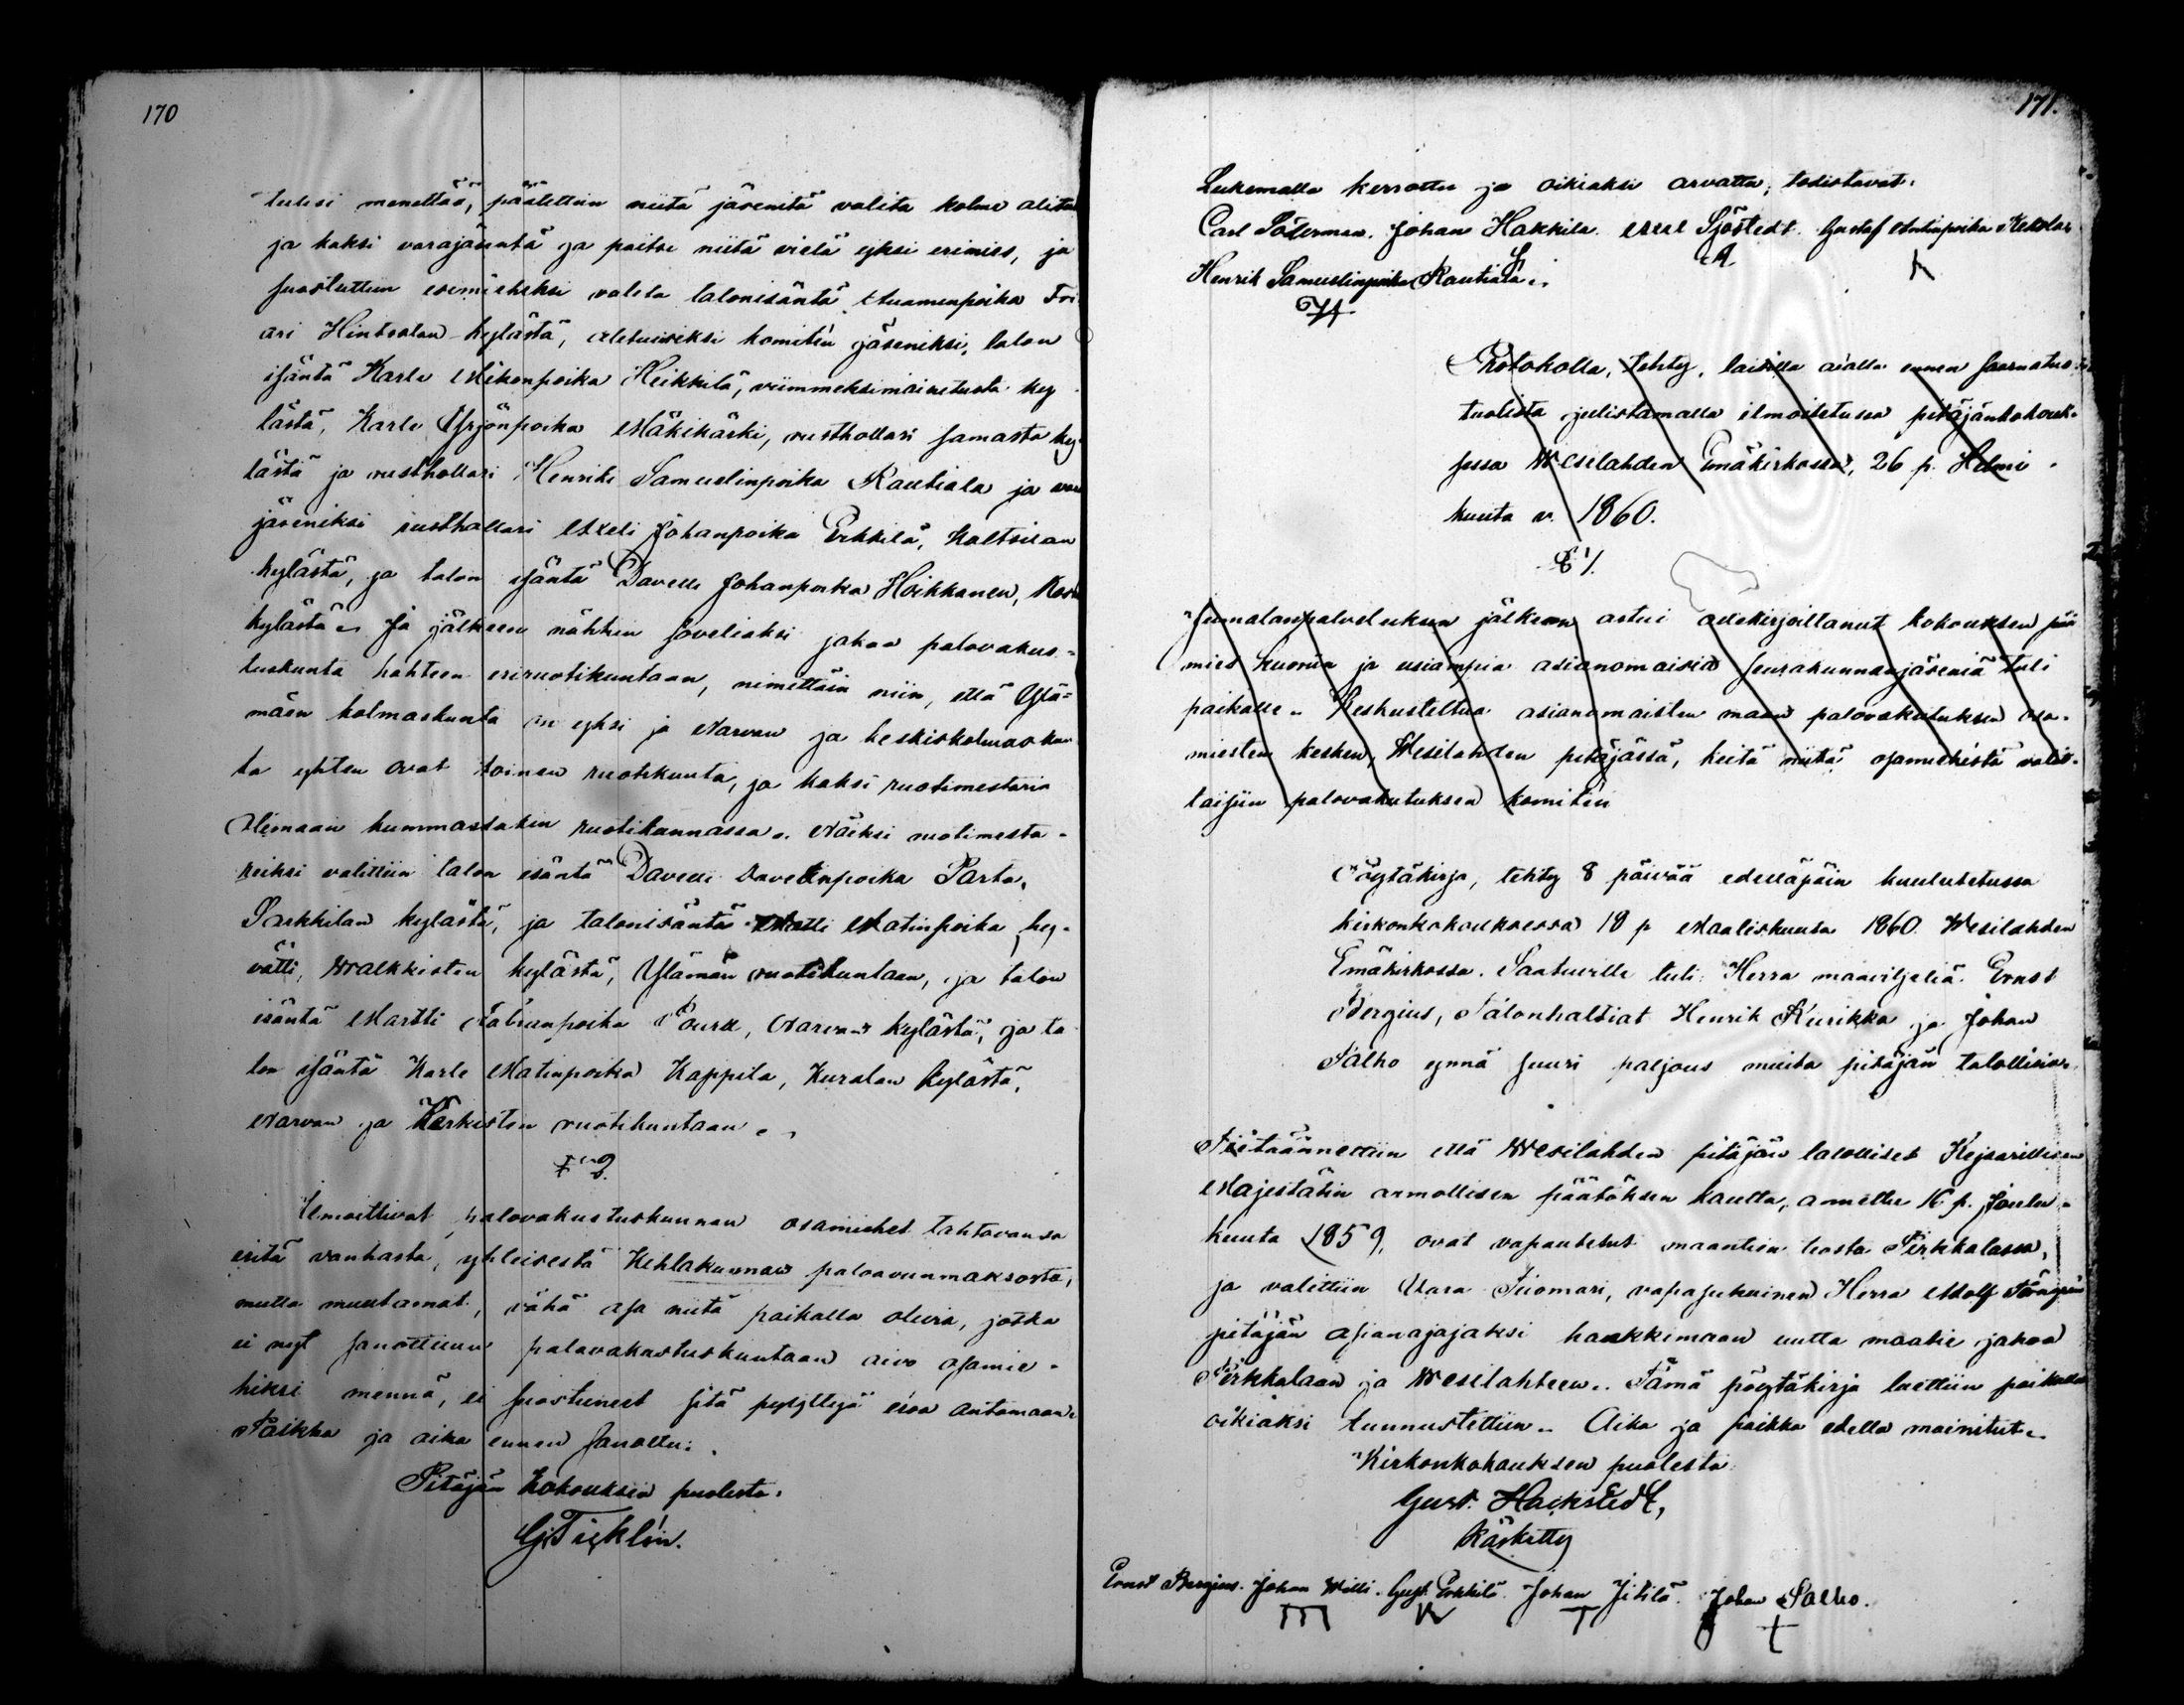 170
tulisi menettää, päätettiin niitä jäsenitä valita kolme
ja kaksi varajäsentä ja paitse niitä vielä yksi esimies, ja
suostuttiin esimieheksi valita talonisäntä Tuomenpoika
ari Hintsalan kylästä, komitén jäseniksi, talon
isäntä Karle Mikonpoika Heikkilä, viimmeksimainitusta ky
lästä, Karle Yrjönpoika Mäkikärki, rusthollari samasta ky
lästä ja rusthollari Henriki Samuelinpoika Rautiala ja vara
jäseniksi rusthollari Akseli Johanpoika Erkkilä, Kaltsilan
kylästä, ja talon isäntä Davelli Johanpoika Hoikkanen,
kylästä. Jä jälkeen nähtiin soveliaksi jakaa palovakus-
tuskunta kahteen eriruotikuntaan, nimittäin niin, että Ylä=
mäen kolmaskunta on yksi ja Narvan ja keskiskolmaskun
ta yhten ovat toinen ruotikunta, ja kaksi ruotimestaria
Olemaan kummassakin ruotikunnassa. Näiksi ruotimesta-
reiksi valittiin talon isäntä Davelli Davelinpoika Parta,
Sarkkilan kylästä, ja talonisäntä Matti Matinpoika hy-
vätti, Walkkisten kylästä, Ylämäen ruotikuntaan, ja talon
isäntä Martti Fabianpoika Pouru, Narvan kylästä, ja ta
lon isäntä Karle Matinpoika Kappila, Kuralan kylästä,
Narvan ja Kerkisten ruotikuntaan.
§ 2.
Ilmoittivat palovakuutuskunnan osamiehet tahtovansa
eritä vanhasta, yhteisestä Kihlakunnan paloavunmaksosta,
mutta muutamat, vähä osa niitä paikalla olevia, jotka
ei nyt sanottuun palovakuutuskuntaan aivo osamie-
hiksi mennä, ei suostuneet sitä pyydettyä eroa antamaan.
Paikka ja aika ennen sanottu.
Pitäjän Kokouksen puolesta:
G. Ticklén.
171.
Lukemalla kerrottu ja oikiaksi arvattu, todistavat:
Carl Söderman. Johan Hakkila. Axel Sjöstedt. Gustaf Antinpoika Kekola
Henrik Samuelinpoika Rautiala.
Protokolla, tehty, laillilla aialla ennen saarnatus
tuolista julistamalla ilmoitetussa pitäjänkokouk-
sessa Wesilahden Emäkirkossa, 26 p. Helmi-
kuuta v. 1860.
§ 1.
Jumalanpalveluksen jälkeen astui allekirjoittanut kokouksen pää
mies kuoriin ja usiampia asianomaisia seurakunnanjäseniä tuli
paikalle. Keskusteltua asianomaisten maan palovakutuksen osa-
miesten kesken, Wesilahden pitäjässä, keitä niitä osamiehistä valit-
taisiin palovakutuksen komitén
Pöytäkirja, tehty 8 päivää edelläpäin kuulutetussa
kirkonkokouksessa 18 p Maaliskuuta 1860 Wesilahden
Emäkirkossa. Saatuville tuli: Herra maanviljeliä Ernst
Bergius, Talonhaltiat Henrik Kurikka ja Johan
Salho ynnä suuri paljous muita pitäjän talollisia.
Tietäännettiin että Wesilahden pitäjän talolliset Keisarillisen
Majestätin armollisen päätöksen kautta, annettu 16 p. Joulu-
kuuta 1859, ovat vapautetut maantien teosta Pirkkalassa,
ja valittiin Vara Tuomari, vapasukuinen Herra Adolf
pitäjän asianajajaksi haukkimaan uutta maatie jakoa
Pirkkalaan ja Wesilahteen. Tämä pöytäkirja luettiin paikalla
oikiaksi tunnustettiin. Aika ja paikka edellä mainitut.
Kirkonkokouksen puolesta
Gust. Hackstedt,
Käsketty
Ernst Bergius. Johan Welli. Gust. Erkkilä. Johan Jitilä. Johan Salho.